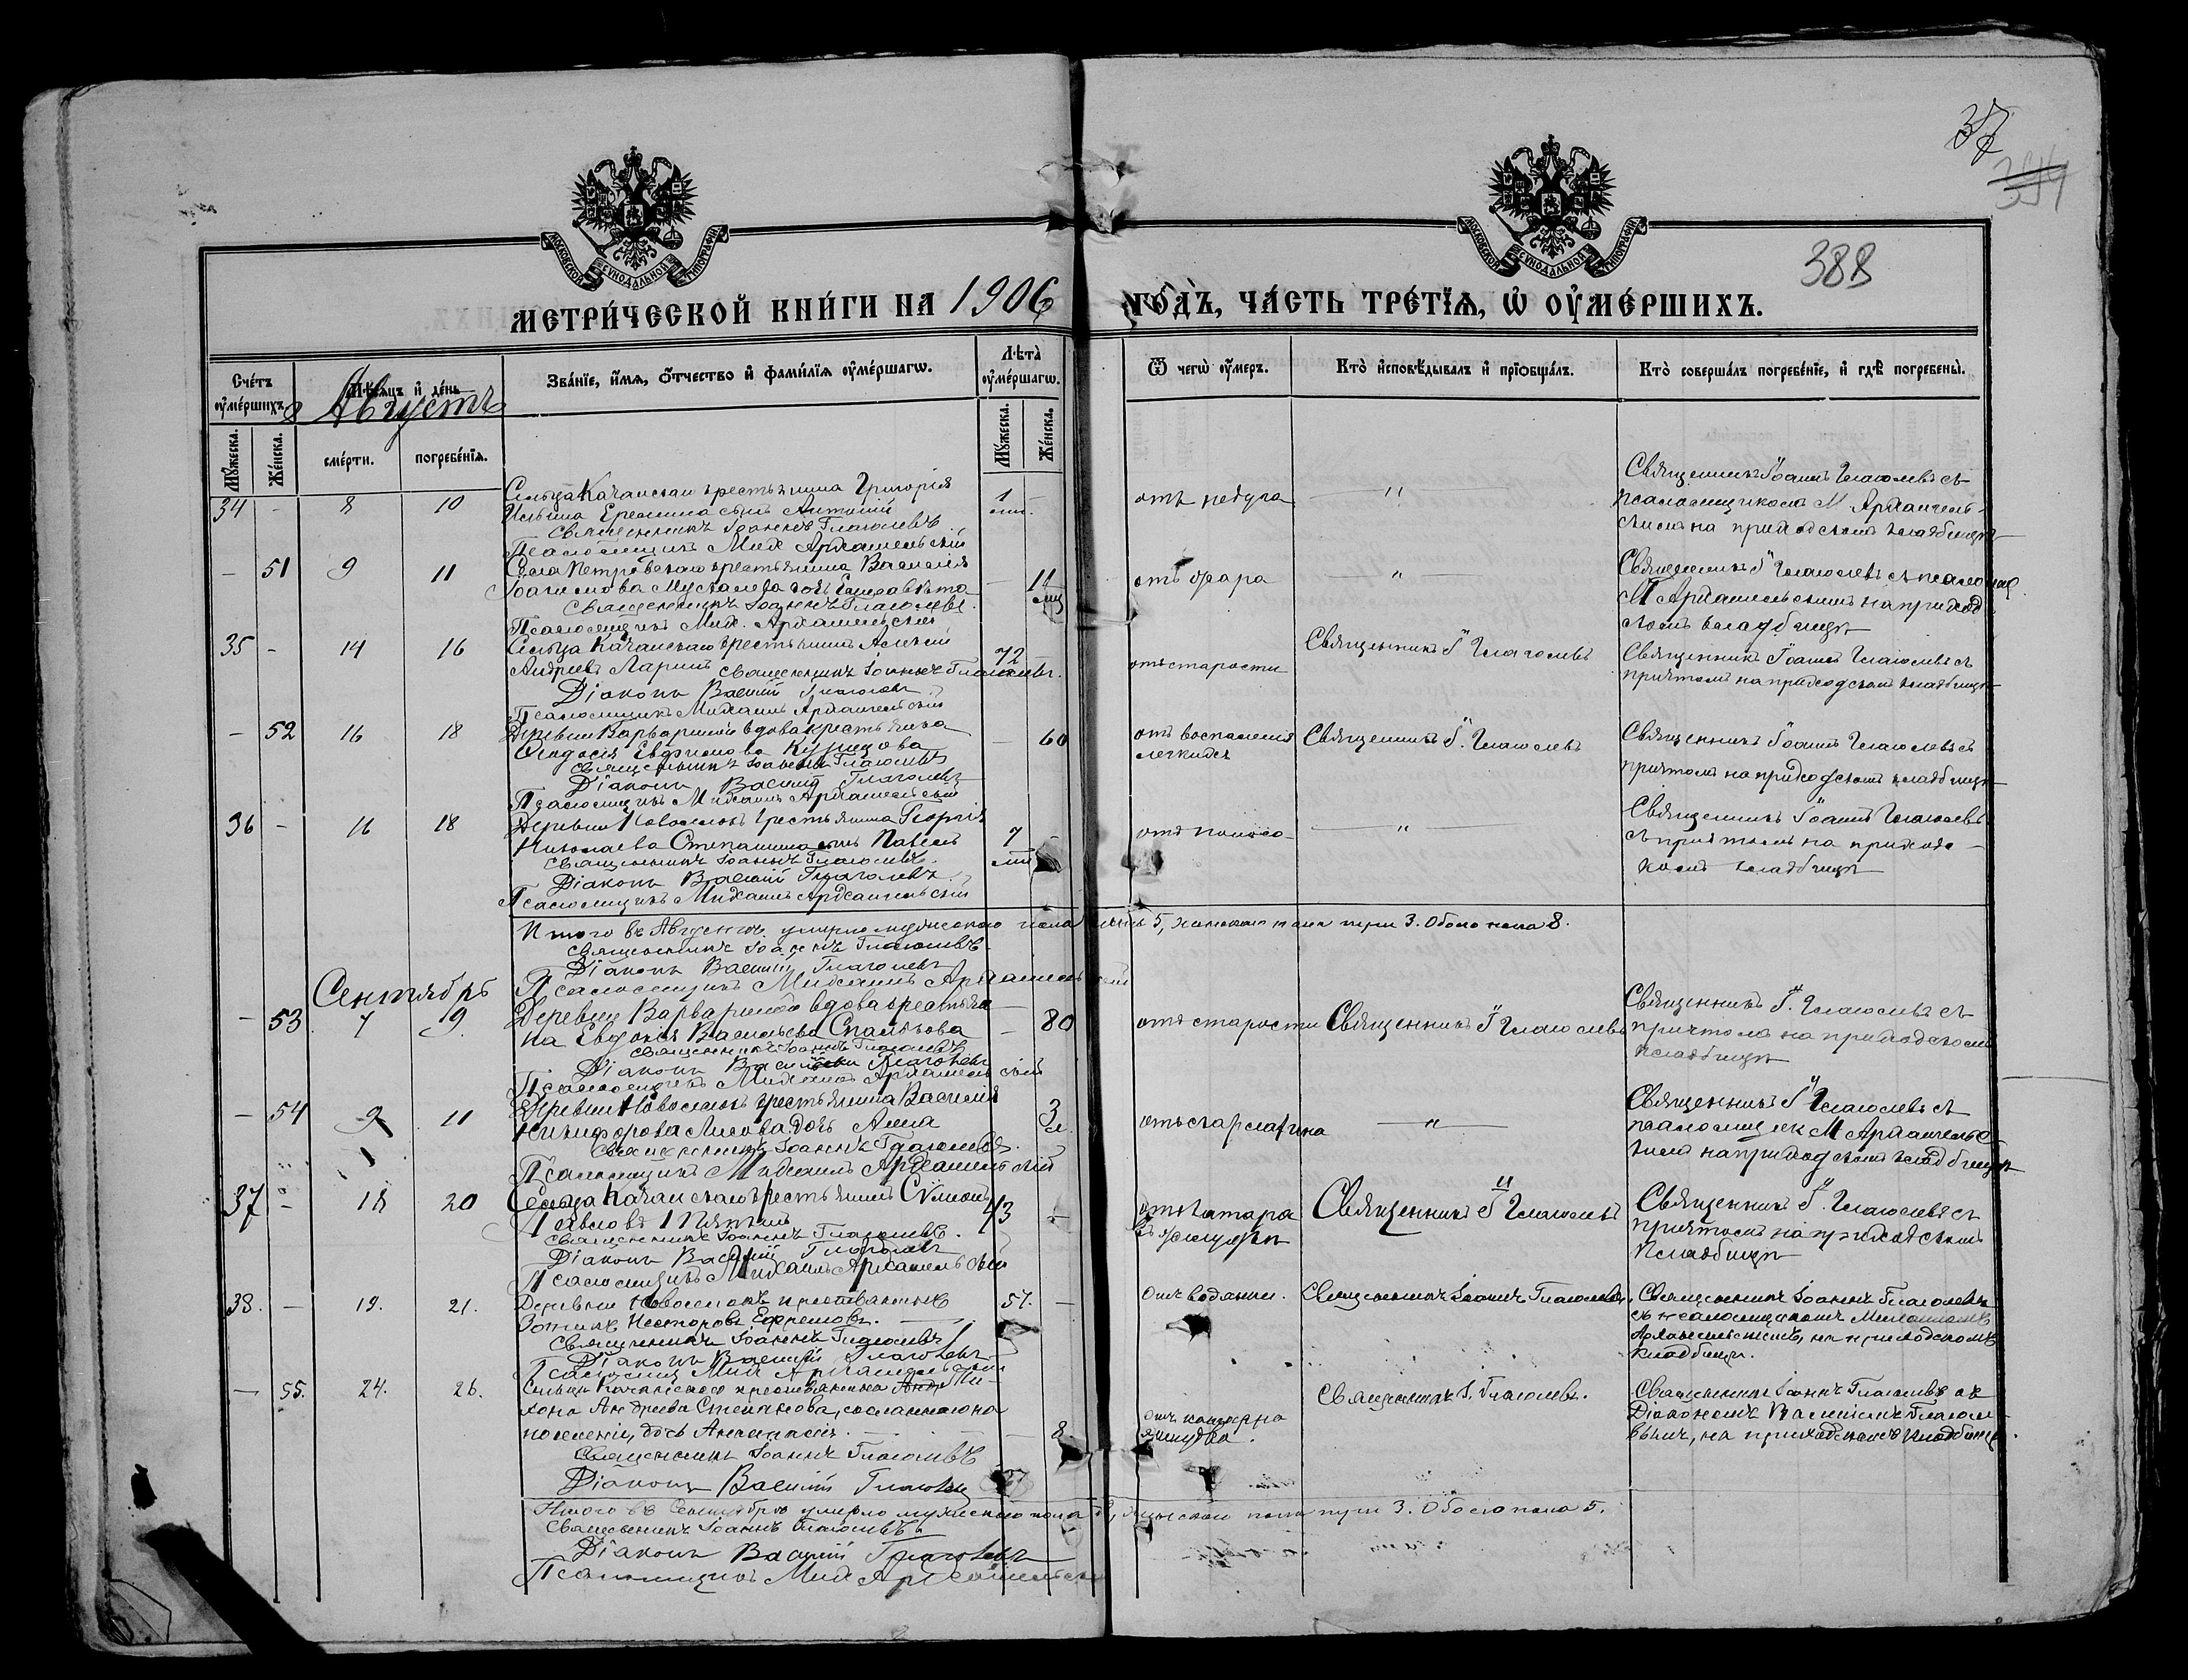 37
388
МОСКОВСКОЙ СУНОДАЛЬНОЙ ТИПОГРАФІИ
МОСКОВСКОЙ СУНОДАЛЬНОЙ ТИПОГРАФІИ
МЕТРИ́ЧЕСКОЙ КНИ́ГИ НА 1906 ГО́ДЪ, ЧА́СТЬ ТРЕ́ТІѦ, Ѡ҆ ОУ҆МЕ́РШИХЪ.
Сче́тъ оу҆ме́ршихъ.
Мѣсѧцъ и҆ де́нь
Августъ
Зва́нїе, и҆́мѧ, ѻ҆́тчество и҆ фами́лїѧ оу҆ме́ршагѡ.
Лѣта̀ оу҆ме́ршагѡ.
Ѿ чегѡ̀ оу҆́меръ.
Кто̀ и҆сповѣ́дывалъ и҆ прїѡбща́лъ.
Кто̀ соверша́лъ погребе́нїе, и҆ гдѣ̀ погребены̀.
Мꙋ́жеска. Же́нска. сме́рти. погребе́нїѧ. Мꙋ́жеска. Же́нска.
34 - 8 10
Сельца Качанскаго крестьянина Григорія
Ильина Еремина сынъ Антоній
Священникъ Іоаннъ Глаголевъ
Псаломщикъ Мих Архангельскій
1 -
отъ недуга
"
Священникъ Іоаннъ Глаголевъ съ
псаломщикомъ М Архангель-
скимъ на приходскомъ кладбищѣ
- 51 9 11
Села Петровскаго крестьянина Василія
дочь Елисавета
Священникъ Іоаннъ Глаголевъ
Псаломщикъ Мих. Архангельскій
- 11
отъ жара
"
Священникъ І Глаголевъ съ
М Архангельскимъ на приход
скомъ кладбищѣ
35 - 14 16
Сельца Качанскаго крестьянинъ Алексій
Андреевъ Ларинъ Священникъ Іоаннъ Глаголевъ.
Діаконъ Василій Глаголевъ
Псаломщикъ Михаилъ Архангельскій
72
отъ старости
Священникъ І Глаголевъ
Священникъ Іоаннъ Глаголевъ съ
причтомъ на приходскомъ кладбищѣ
- 52 16 18
Деревни Варвариной вдова крестьянка
Ѳеодосія Евфимова
Священникъ Іоаннъ Глаголевъ
Діаконъ Василій Глаголевъ
Псаломщикъ Михаилъ Архангельскій
- 60
отъ воспаленія
легкихъ
Священникъ І. Глаголевъ
Священникъ Іоаннъ Глаголевъ съ
причтомъ на приходскомъ кладбищѣ
36 - 16 18
Деревни Новоселокъ крестьянина Георгія
Николаева Степанина сынъ Павелъ
Священникъ Іоаннъ Глаголевъ.
Діаконъ Василій Глаголевъ
Псаломщикъ Михаилъ Архангельскій
7 -
отъ поноса
"
Священникъ Іоаннъ Глаголевъ
съ причтомъ на приходс-
комъ кладбищѣ
Итого въ Августѣ умерло мужескаго пола пять 5, женскаго пола три 3. Обоего пола 8.
Священникъ Іоаннъ Глаголевъ
Діаконъ Василій Глаголевъ
Псаломщикъ Михаилъ Архангельскій
Сентябрь
- 53 7 9
Деревни Варвариной вдова крестьян
ка Евдокія Васильева
Священникъ Іоаннъ Глаголевъ
Діаконъ Василій Глаголевъ
Псаломщикъ Михаилъ Архангельскій
- 80
отъ старости
Священникъ І Глаголевъ
Священникъ І. Глаголевъ съ
причтомъ на приходскомъ
кладбищѣ
- 54 9 11
Деревни Новоселокъ крестьянина Василія
Никифорова дочь Анна
Священникъ Іоаннъ Глаголевъ.
Псаломщикъ Михаилъ Архангельскій
3
отъ скарлатина
"
Священникъ І Глаголевъ съ
М Архангельс
кимъ на приходскомъ кладбищѣ
37 - 18 20
Сельца Качанскаго крестьянинъ Сѵмеонъ
Павловъ
Священникъ Іоаннъ Глаголевъ.
Діаконъ Василій Глаголевъ
Псаломщикъ Михаилъ Архангельскій
43 -
отъ катара
желудка
Священникъ І Глаголевъ
Священникъ І. Глаголевъ съ
причтомъ на приходскомъ
кладбищѣ
38. - 19. 21.
Деревни Новоселокъ крестьянинъ
Несторовъ Ефремовъ.
Священникъ Іоаннъ Глаголевъ
Діаконъ Василій Глаголевъ
Псаломщ Мих Архангельскій
57. -
Отъ водянки.
Священникъ Іоаннъ Глаголевъ.
Священникъ Іоаннъ Глаголевъ
съ псаломщикомъ Михаиломъ
Архангельскимъ, на приходскомъ
кладбищѣ.
- 55. 24. 26.
Сельца Качанскаго крестьянина Ти-
хона Андреева Степанова, сосланнаго на
поселеніе, дочь Анастасія.
Священникъ Іоаннъ Глаголевъ
Діаконъ Василій Глаголевъ
- 8
Отъ катарра
желудка.
Священникъ І. Глаголевъ.
Священникъ Іоаннъ Глаголевъ съ
Діакономъ Василіемъ Глаголе-
вымъ, на приходскомъ кладбищѣ.
Итого въ Сентябрѣ умерло мужескаго пола 2, женскаго пола три 3. Обоего пола 5.
Священникъ Іоаннъ Глаголевъ
Діаконъ Василій Глаголевъ
Псаломщикъ Мих Архангельскій